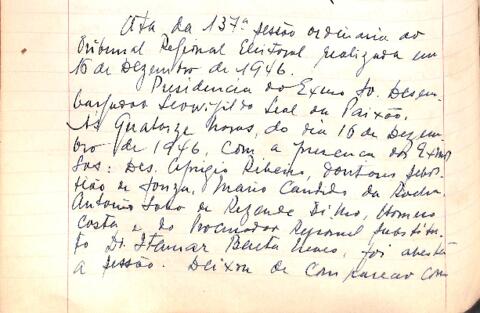 Ata da 137ª sessão ordinaria do
Tribunal Regional Eleitoral realizada em
16 de Dezembro de 1946.
Presidencia do Exmo Sr. Desem-
bargador Leovigildo Leal da Paixão.
Às quatorze horas, do dia 16 de Dezem-
bro de 1946, com a presença dos Exmos
Srs: Des. Aprigio Ribeiro, doutores Sebas-
tião de Souza, Mario Candido da Rocha,
Antonio de Rezende, Homero
Costa e do Procurador Regional substitu-
to Dr. Itamar, foi aberta
a sessão. Deixou de comparecer com